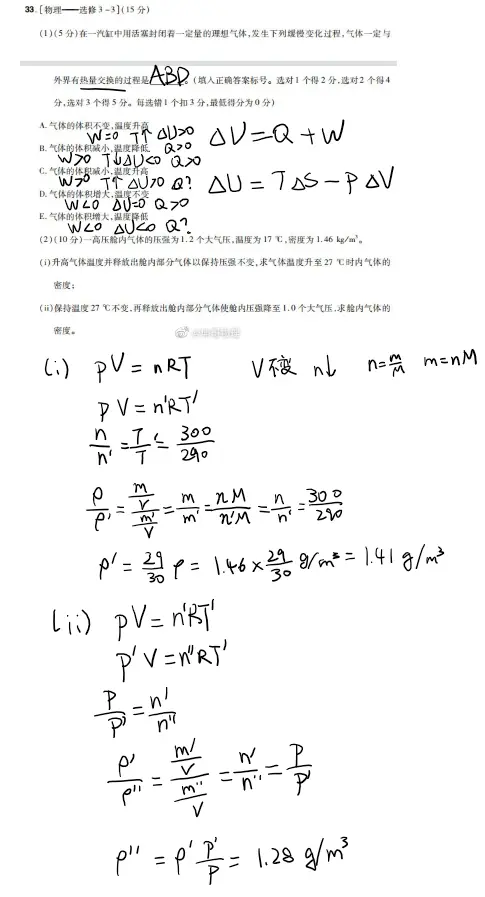 33.[物理——选修3-3](15分)
(1)(5分)在一汽缸中用活塞封闭着一定量的理想气体,发生下列缓慢变化过程,气体一定与
外界有热量交换的过程是ABD。(填入正确答案标号。选对1个得2分,选对2个得4
分,选对3个得5分。每选错1个扣3分,最低得分为0分)
A.气体的体积不变,温度升高
W=0 T↑ ΔU>0 Q>0
ΔU=Q+W
B.气体的体积减小,温度降低
W>0 T↓ ΔU<0 Q>0
C.气体的体积减小,温度升高
W>0 T↑ ΔU>0 Q?
ΔU=TΔS-PΔV
D.气体的体积增大,温度不变
W<0 ΔU=0 Q>0
E.气体的体积增大,温度降低
W<0 ΔU<0 Q?
(2)(10分)一高压舱内气体的压强为1.2个大气压,温度为17℃,密度为1.46 kg/m³。
(i)升高气体温度并释放出舱内部分气体以保持压强不变,求气体温度升至27℃时内气体的
密度;
(ii)保持温度27℃不变,再释放出舱内部分气体使舱内压强降至1.0个大气压,求舱内气体的
密度。
(i) pV=nRT V不变 n↓ n=m/M m=nM
pV=n'RT'
n/n'=T'/T=300/290
ρ/ρ'=(m/V)/(m'/V)=m/m'=nM/n'M=n/n'=300/290
ρ'=29/30 ρ=1.46×29/30 g/m³=1.41 g/m³
(ii) pV=n'RT'
p'V=n''RT'
P/P'=n'/n''
ρ'/ρ''=(m'/V)/(m''/V)=n'/n''=P/P'
ρ''=ρ' P'/P=1.28 g/m³